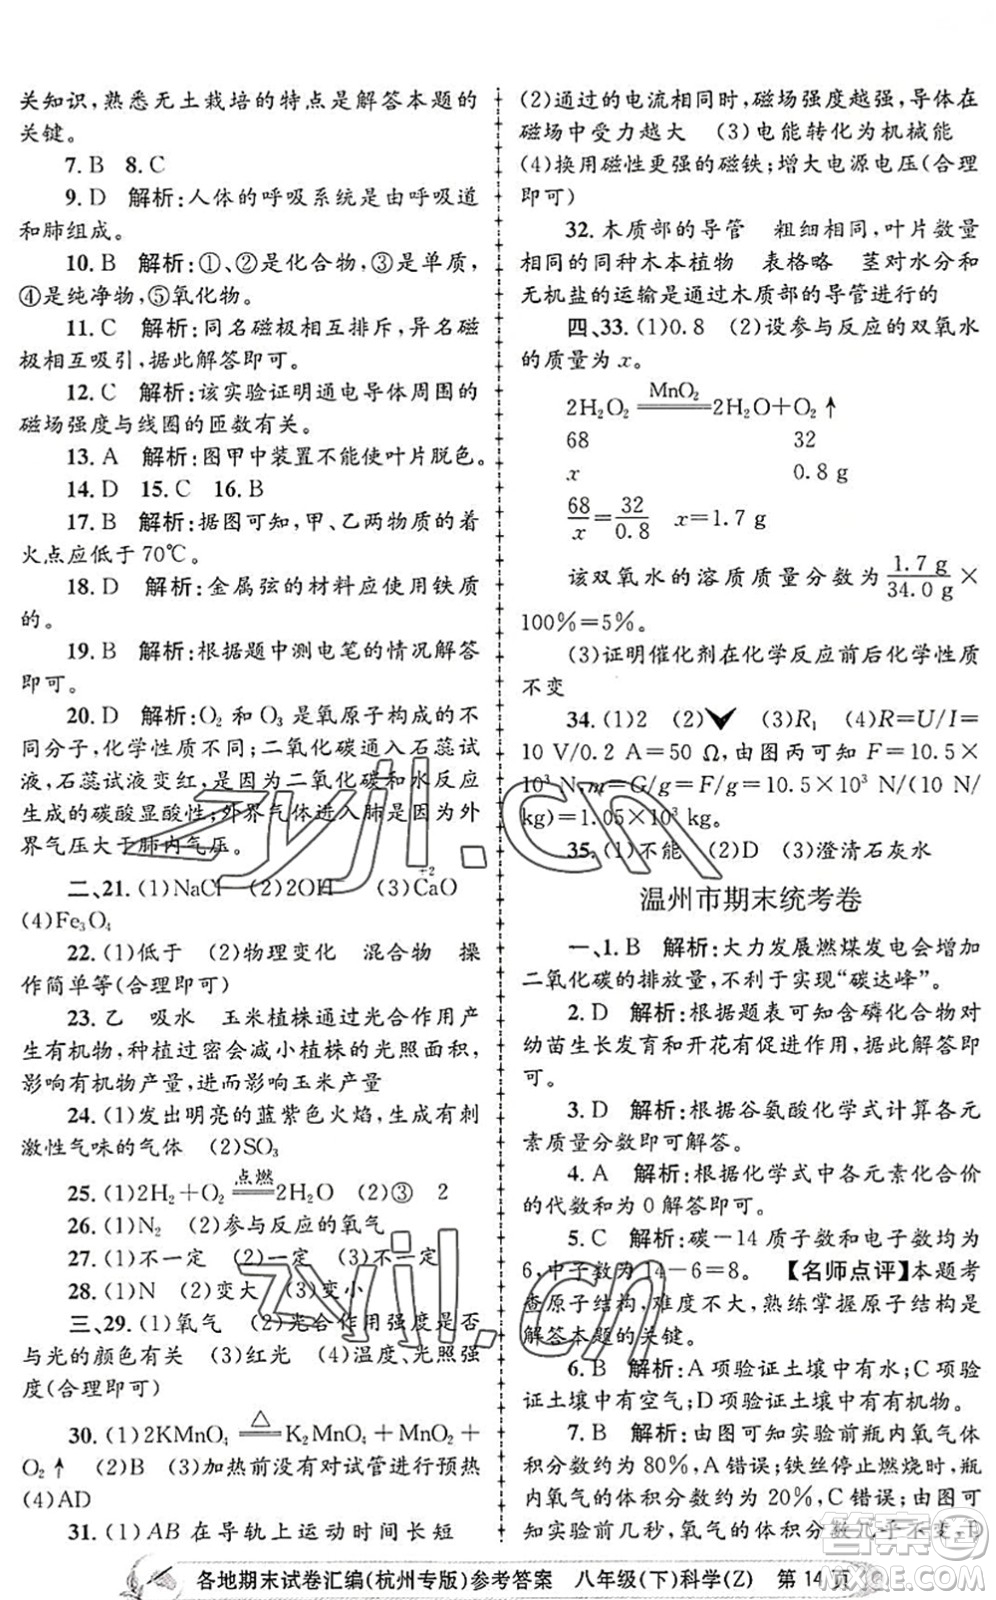 关知识,熟悉无土栽培的特点是解答本题的
关键。
7. B 8. C
9. D 解析:人体的呼吸系统是由呼吸道
和肺组成。
10. B 解析:①、②是化合物,③是单质,
④是纯净物,⑤氧化物。
11. C 解析:同名磁极相互排斥,异名磁
极相互吸引,据此解答即可。
12. C 解析:该实验证明通电导体周围的
磁场强度与线圈的匝数有关。
13. A 解析:图甲中装置不能使叶片脱色。
14. D 15. C 16. B
17. B 解析:据图可知,甲、乙两物质的着
火点应低于70℃。
18. D 解析:金属弦的材料应使用铁质
的。
19. B 解析:根据题中测电笔的情况解答
即可。
20. D 解析:O₂ 和 O₃ 是氧原子构成的不
同分子,化学性质不同;二氧化碳通入石蕊试
液,石蕊试液变红,是因为二氧化碳和水反应
生成的碳酸显酸性;外界气体进入肺时,外
界气压大于肺内气压。
二、21. (1)NaCl (2)2OH⁻ (3)CaO(Ca上标+2)
(4)Fe₃O₄
22. (1)低于 (2)物理变化 混合物 操
作简单等(合理即可)
23. 乙 吸水 玉米植株通过光合作用产
生有机物,种植过密会减小植株的光照面积,
影响有机物产量,进而影响玉米产量
24. (1)发出明亮的蓝紫色火焰,生成有刺
激性气味的气体 (2)SO₃
25. (1)2H₂+O₂ =点燃= 2H₂O (2)③ 2
26. (1)N₂ (2)参与反应的氧气
27. (1)不一定 (2)不 (3)不一定
28. (1)N (2)变大 (3)变小
三、29. (1)氧气 (2)光合作用强度是否
与光的颜色有关 (3)红光 (4)温度、光照强
度(合理即可)
30. (1)2KMnO₄ =△= K₂MnO₄+MnO₂+
O₂↑ (2)B (3)加热前没有对试管进行预热
(4)AD
31. (1)AB 在导轨上运动时间长短
(2)通过的电流相同时,磁场强度越强,导体在
磁场中受力越大 (3)电能转化为机械能
(4)换用磁性更强的磁铁;增大电源电压(合理
即可)
32. 木质部的导管 粗细相同,叶片数量
相同的同种木本植物 表格略 茎对水分和
无机盐的运输是通过木质部的导管进行的
四、33. (1)0.8 (2)设参与反应的双氧水
的质量为 x。
2H₂O₂ =MnO₂= 2H₂O+O₂↑
68 32
x 0.8 g
68/x=32/0.8 x=1.7 g
该双氧水的溶质质量分数为 1.7 g/34.0 g ×
100%=5%。
(3)证明催化剂在化学反应前后化学性质
不变
34. (1)2 (2)✓ (3)R₁ (4)R=U/I=
10 V/0.2 A=50 Ω,由图两可知 F=10.5×
10³ N,m=G/g=F/g=10.5×10³ N/(10 N/
kg)=1.05×10³ kg。
35. (1)不能 (2)D (3)澄清石灰水
温州市期末统考卷
一、1. B 解析:大力发展燃煤发电会增加
二氧化碳的排放量,不利于实现“碳达峰”。
2. D 解析:根据题表可知含磷化合物对
幼苗生长发育和开花有促进作用,据此解答即
可。
3. D 解析:根据谷氨酸化学式计算各元
素质量分数即可解答。
4. A 解析:根据化学式中各元素化合价
的代数和为 0 解答即可。
5. C 解析:碳-14 质子数和电子数均为
6,中子数为 14-6=8。 【名师点评】本题考
查原子结构,难度不大,熟练掌握原子结构是
解答本题的关键。
6. B 解析:A 项验证土壤中有水;C 项验
证土壤中有空气;D 项验证土壤中有有机物。
7. B 解析:由图可知实验前瓶内氧气体
积分数约为 80%,A 错误;铁丝停止燃烧时,瓶
内氧气的体积分数约为 20%,C 错误;由图可
知实验前几秒,氧气的体积分数几乎不变,D
各地期末试卷汇编(杭州专版)参考答案 八年级(下)科学(Z) 第 14 页
zyjl.cn
zyjl.cn
答案